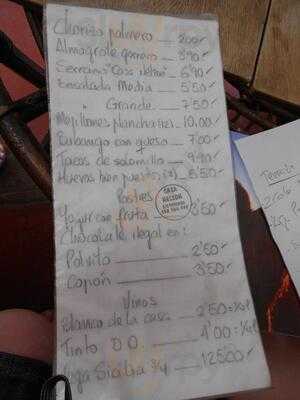 Chorizo palmero __ 2'00
Almagrote gomero __ 3'90
Serrano "Casa Nelson" __ 6'90
Ensalada Media __ 5'50
" Grande __ 7'50
Mejillones plancha __ 10,00
con queso __ 7'00
Tacos de solomillo __ 9'90
Huevos bien puestos __ 6'50
Postres
CASA NELSON
Yogur con fruta 3'50
Chocolate ilegal en:
Polvito __ 2'50
Copón __ 3'50
Vinos
Blanco de la casa __ 2'50
Tinto " " __ 4'00
Vega Sicilia 3/4 __ 125'00